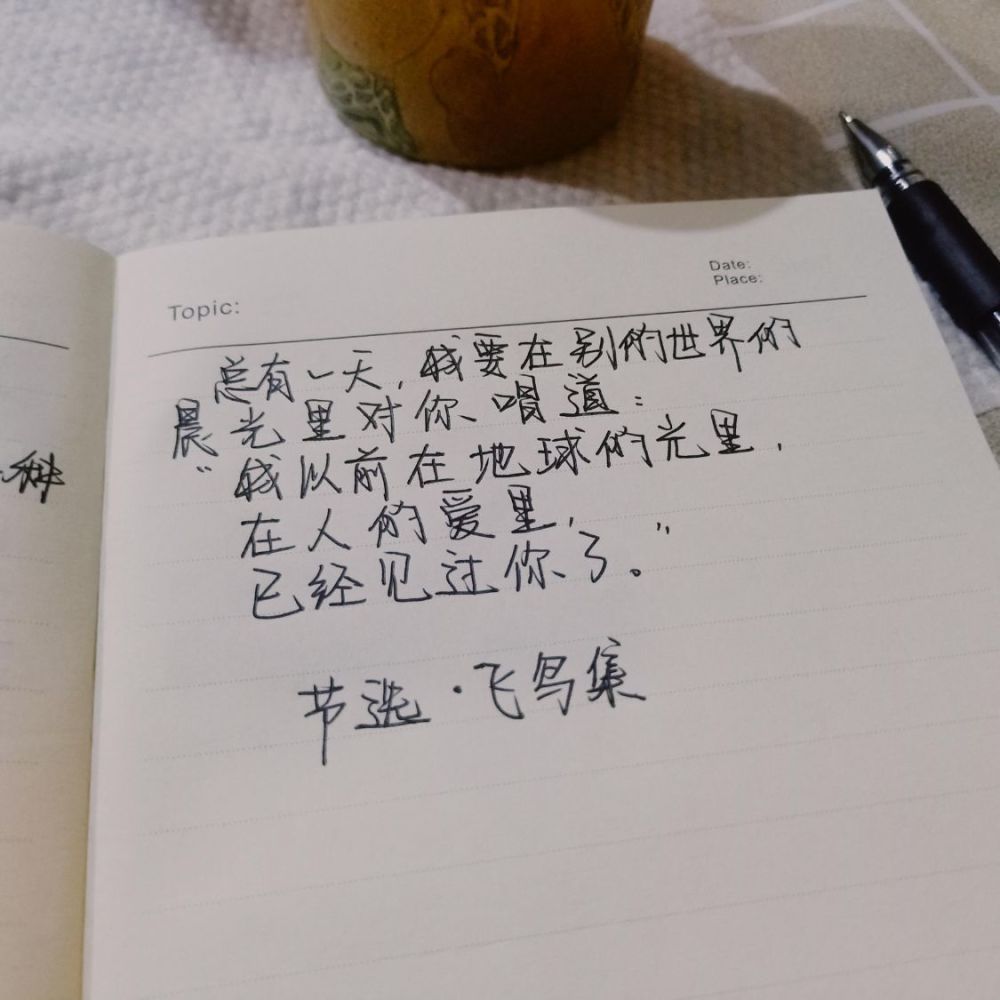 Topic:
Date:
Place:
总有一天,我要在别的世界的
晨光里对你唱道:
"我以前在地球的光里,
在人的爱里,
已经见过你了。"
节选·飞鸟集
种